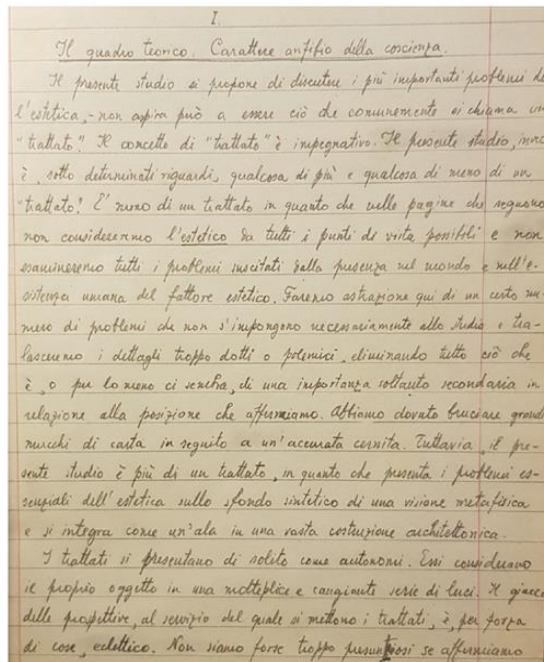 I.
Il quadro teorico. Carattere anfibio della coscienza.
Il presente studio si propone di discutere i più importanti problemi de
l'estetica, - non aspira però a essere ciò che comunemente si chiama un
"trattato". Il concetto di "trattato" è impegnativo. Il presente studio, invec
è, sotto determinati riguardi, qualcosa di più e qualcosa di meno di un
"trattato". E' meno di un trattato in quanto che nelle pagine che seguono
non considereremo l'estetico da tutti i punti di vista possibili e non
esamineremo tutti i problemi suscitati dalla presenza nel mondo e nell'e-
sistenza umana del fattore estetico. Faremo astrazione qui di un certo nu-
mero di problemi che non s'impongono necessariamente allo studio e tra-
lasceremo i dettagli troppo dotti o polemici, eliminando tutto ciò che
è, o per lo meno ci sembra, di una importanza soltanto secondaria in
relazione alla posizione che affermiamo. Abbiamo dovuto bruciare grandi
mucchi di carta in seguito a un'accurata cernita. Tuttavia, il pre-
sente studio è più di un trattato, in quanto che presenta i problemi es-
senziali dell'estetica sullo sfondo sintetico di una visione metafisica
e si integra come un'ala in una vasta costruzione architettonica.
I trattati si presentano di solito come autonomi. Essi considerano
il proprio oggetto in una molteplice e cangiante serie di luci. Il gioco
delle prospettive, al servizio del quale si mettono i trattati, è, per forza
di cose, eclettico. Non siamo forse troppo presuntuosi se affermiamo